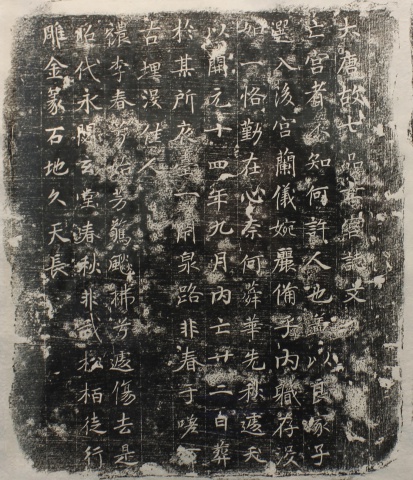 大唐故七品亡宫誌文
亡宫者不知何許人也盖以良家子
選入後宫蘭儀婉麗備于内職存没
如一恪勤在心奈何蕣華先秋遽夭
以開元十四年九月内亡廿二日葬
於其所夜臺一閇泉路非春于嗟
古埋没佳人
穠李春兮始芳驚飈拂兮遽傷去是
昭代永閇玄堂春秋非我松柏徒行
雕金篆石地久天長